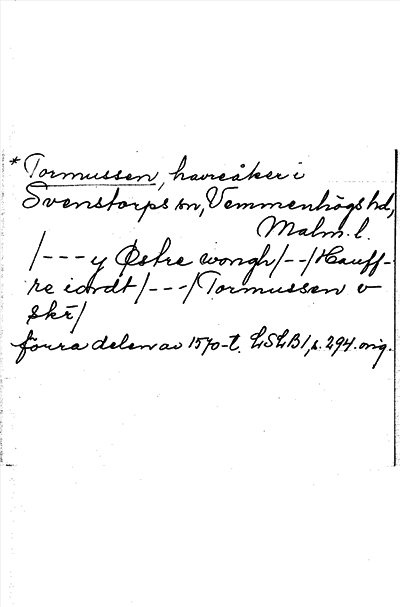 * Tormussen, havreåker i
Svenstorps sn, Vemmenhögs hd,
Malm. l.
/---y Østre wongh/--/Hauff-
re iordt/---/Tormussen v
skr/
förra delen av 1570-t. LSLB1, s. 294. orig.